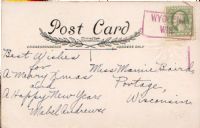 Post Card
CORRESPONDENCE
ADDRESS ONLY
Best Wishes
for
A Merry Xmas
And
A Happy New Year
Mabel Andrews
Miss Mamie Baird
Portage,
Wisconsin